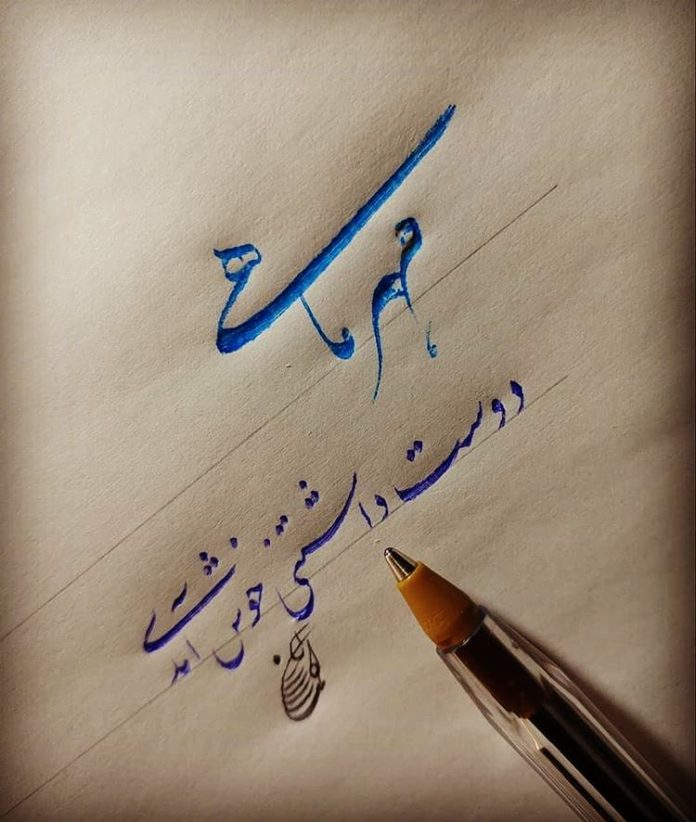 مهر ماهی
دوست داشتنی خوش آمدی